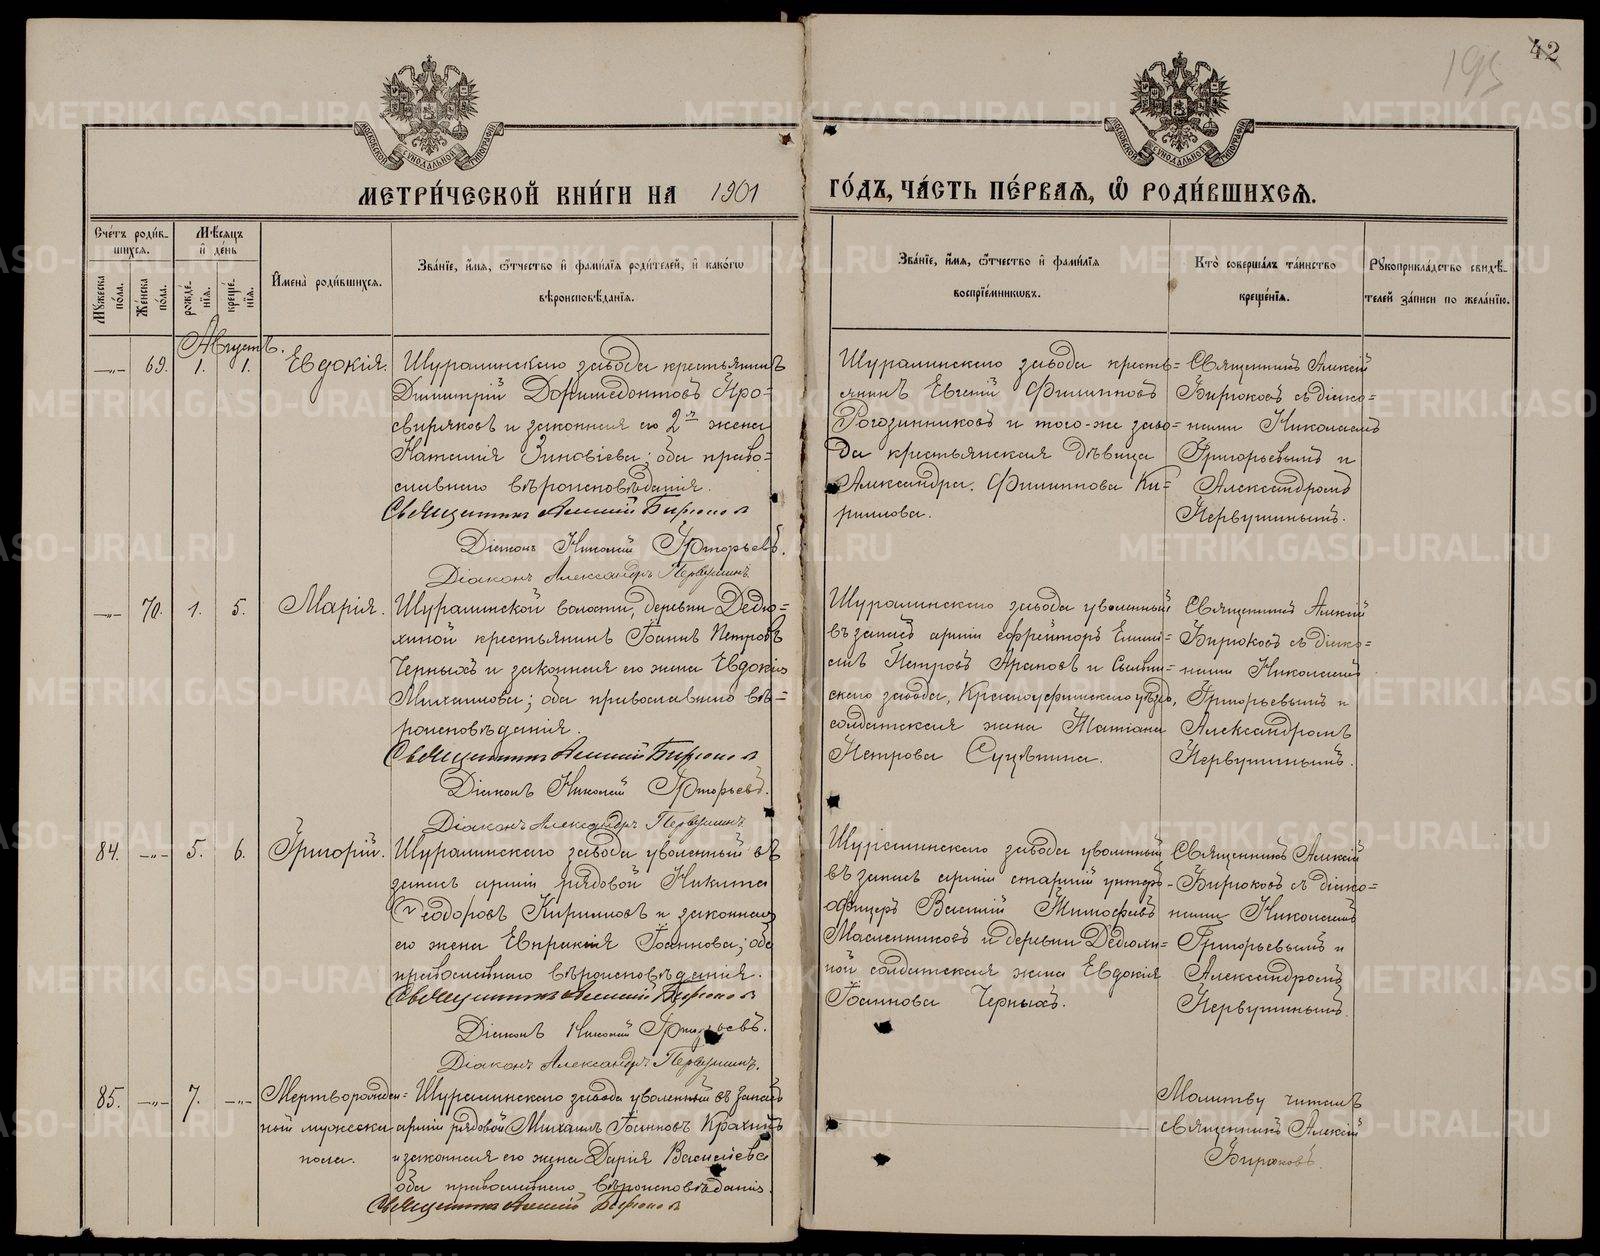 195
42
МОСКОВСКОЙ СѴНОДАЛЬНОЙ ТИПОГРАФІИ
МОСКОВСКОЙ СѴНОДАЛЬНОЙ ТИПОГРАФІИ
МЕТРИ́ЧЕСКОЙ КНИ́ГИ НА 1901 ГО́ДЪ, ЧА́СТЬ ПЕ́РВАѦ, Ѡ҆ РОДИ́ВШИХСѦ.
Сче́тъ роди́в-
шихсѧ.
Мѣ́сѧцъ
и҆ де́нь
Мꙋ́жеска
по́ла.
Же́нска
по́ла.
рожде́-
нїѧ.
креще́-
нїѧ.
И҆мена̀ роди́вшихсѧ.
Зва́нїе, и҆́мѧ, ѻ҆́тчество и҆ фами́лїѧ роди́телей, и҆ како́гѡ
вѣроисповѣ́данїѧ.
Зва́нїе, и҆́мѧ, ѻ҆́тчество и҆ фами́лїѧ
воспрїе́мникѡвъ.
Кто̀ соверша́лъ та́инство
креще́нїѧ.
Рꙋкоприкла́дство свидѣ́-
телей за́писи по жела́нїю.
Августъ.
—„— 69. 1. 1. Евдокія.
Шуралинскаго завода крестьянинъ
Димитрій Доримедонтовъ Про-
свиряковъ и законная его 2я жена
Наталія Зиновіева; оба право-
славнаго вѣроисповѣданія.
Священникъ Алексій Бирюковъ
Діаконъ Николай Григорьевъ.
Діаконъ Александръ Первушинъ.
Шуралинскаго завода кресть-
янинъ Евгеній Филипповъ
Рогозинниковъ и того-же заво-
да крестьянская дѣвица
Александра Филиппова Ки-
риллова.
Священникъ Алексій
Бирюковъ съ діако-
нами Николаемъ
Григорьевымъ и
Александромъ
Первушинымъ.
—„— 70. 1. 5. Марія.
Шуралинской волости, деревни Дедю-
хиной крестьянинъ Іоаннъ Петровъ
Черныхъ и законная его жена Евдокія
Михаилова; оба православнаго вѣ-
роисповѣданія.
Священникъ Алексій Бирюковъ
Діаконъ Николай Григорьевъ.
Діаконъ Александръ Первушинъ.
Шуралинскаго завода уволенный
въ запасъ арміи ефрейторъ
Петровъ Араповъ и
скаго завода, Красноуфимскаго уѣзда,
солдатская жена Татіана
Петрова
Священникъ Алексій
Бирюковъ съ діако-
нами Николаемъ
Григорьевымъ и
Александромъ
Первушинымъ.
84. —„— 5. 6. Григорій.
Шуралинскаго завода уволенный въ
запасъ арміи рядовой Никита
Ѳеодоровъ Кирилловъ и законная
его жена Евпраксія Іоаннова; оба
православнаго вѣроисповѣданія.
Священникъ Алексій Бирюковъ
Діаконъ Николай Григорьевъ.
Діаконъ Александръ Первушинъ.
Шуралинскаго завода уволенный
въ запасъ арміи старшій унтеръ-
офицеръ Василій Тимофеевъ
Масленниковъ и деревни Дедюхи-
ной солдатская жена Евдокія
Іоаннова Черныхъ.
Священникъ Алексій
Бирюковъ съ діако-
нами Николаемъ
Григорьевымъ и
Александромъ
Первушинымъ.
85. —„— 7. —„—
Мертворожден-
ный мужска
пола.
Шуралинскаго завода уволенный въ запасъ
арміи рядовой Михаилъ Іоанновъ Крахинъ
и законная его жена Дарія Василіева
оба православнаго вѣроисповѣданія.
Священникъ Алексій Бирюковъ
Молитву читалъ
священникъ Алексій
Бирюковъ.